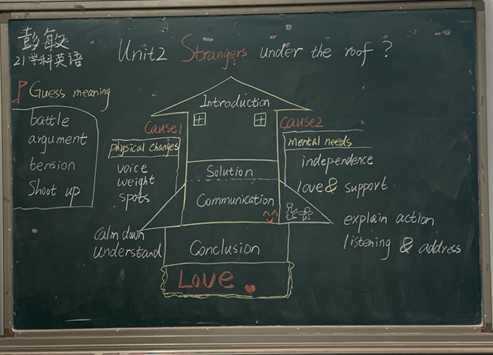 彭敏
21学科英语
Unit2 Strangers under the roof ?
Guess meaning
battle
argument
tension
Shoot up
Introduction
Cause1
physical changes
voice
weight
spots
Cause2
mental needs
independence
love & support
Solution
Communication
Calm down
Understand
explain action
listening & address
Conclusion
Love